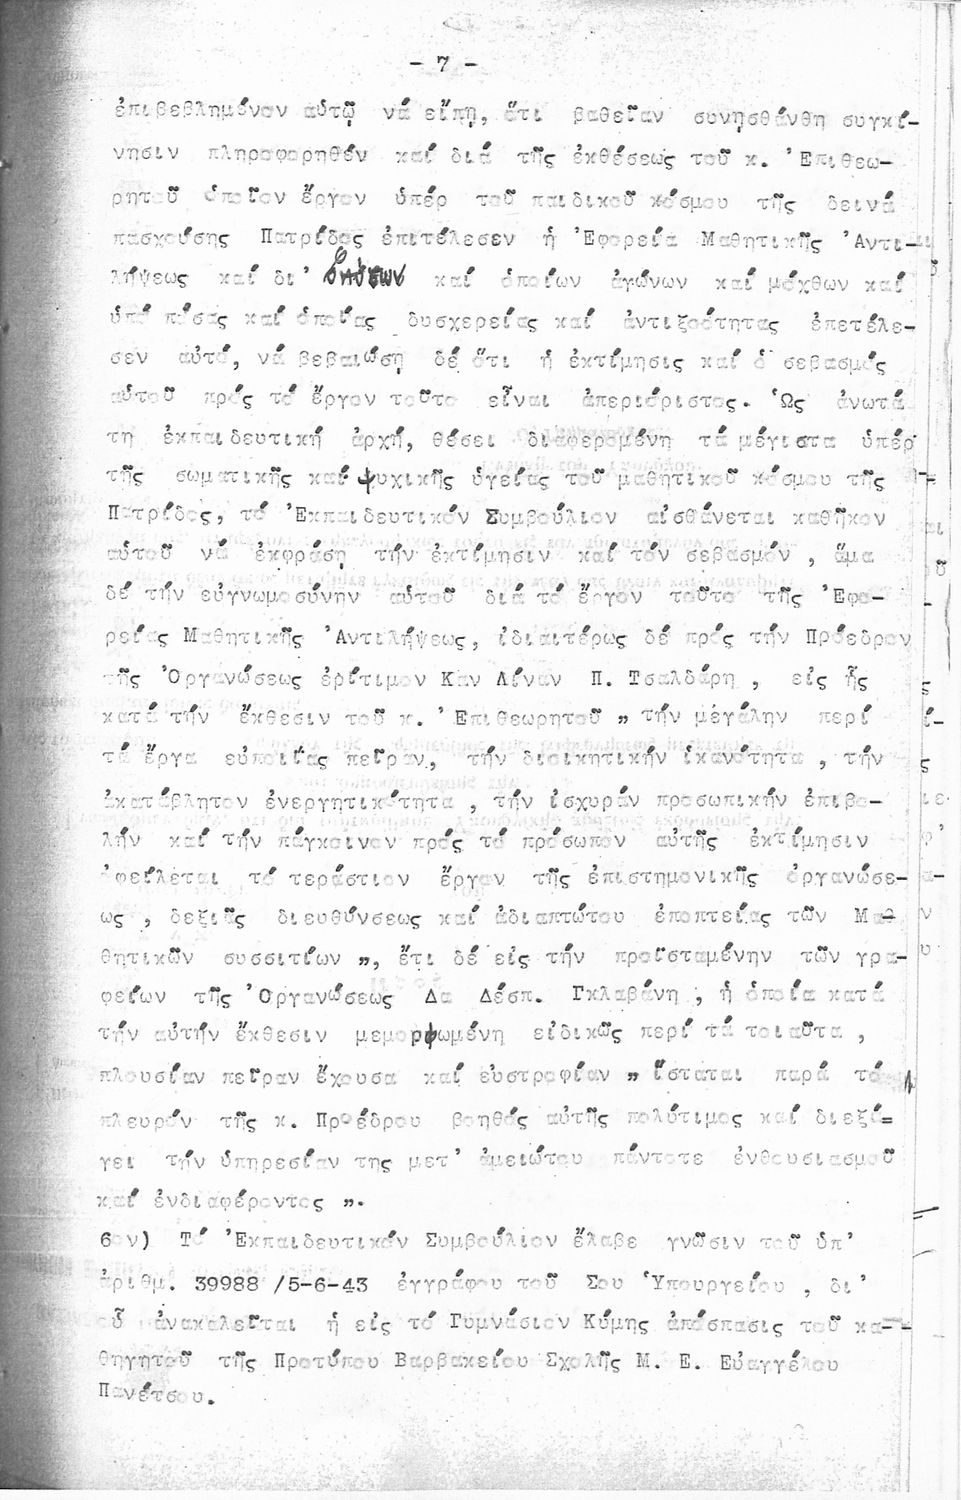 - 7 -
ἐπιβεβλημένον αὐτῷ νά εἴπῃ, ὅτι βαθεῖαν συνῃσθάνθη συγκί-
νησιν πληροφορηθέν καί διά τῆς ἐκθέσεως τοῦ κ. Ἐπιθεω-
ρητοῦ ὁποῖον ἔργον ὑπέρ τοῦ παιδικοῦ κόσμου τῆς δεινά
πασχούσης Πατρίδος ἐπιτέλεσεν ἡ Ἐφορεία Μαθητικῆς Ἀντι-
λήψεως καί δι' ὅπόσων καί ὁποίων ἀγώνων καί μόχθων καί
ὑπό πόσας καί ὁποίας δυσχερείας καί ἀντιξοότητας ἐπετέλε-
σεν αὐτό, νά βεβαιώσῃ δέ ὅτι ἡ ἐκτίμησις καί ὁ σεβασμός
αὐτοῦ πρός τό ἔργον τοῦτο εἶναι ἀπεριόριστος. Ὡς ἀνωτά
τη ἐκπαιδευτική ἀρχή, θέσει διαφερομένη τά μέγιστα ὑπέρ
τῆς σωματικῆς καί ψυχικῆς ὑγείας τοῦ μαθητικοῦ κόσμου τῆς
Πατρίδος, τό Ἐκπαιδευτικόν Συμβούλιον αἰσθάνεται καθῆκον
αὐτοῦ νά ἐκφράσῃ τήν ἐκτίμησιν καί τόν σεβασμόν , ἅμα
δέ τήν εὐγνωμοσύνην αὐτοῦ διά τό ἔργον τοῦτο τῆς Ἐφο-
ρείας Μαθητικῆς Ἀντιλήψεως, ἰδιαιτέρως δέ πρός τήν Πρόεδρον
τῆς Ὀργανώσεως ἐρίτιμον Καν Λίναν Π. Τσαλδάρη , εἰς ἧς
κατά τήν ἔκθεσιν τοῦ κ. Ἐπιθεωρητοῦ „ τήν μέγάλην περί
τά ἔργα εὐποιΐας πεῖραν, τήν διοικητικήν ἱκανότητα , τήν
ἀκατάβλητον ἐνεργητικότητα , τήν ἰσχυράν προσωπικήν ἐπιβο-
λήν καί τήν πάγκοινον πρός τό πρόσωπον αὐτῆς ἐκτίμησιν
ὀφείλεται τό τεράστιον ἔργον τῆς ἐπιστημονικῆς ὀργανώσε-
ως , δεξιᾶς διευθύνσεως καί ἀδιαπτώτου ἐποπτείας τῶν Μαθ-
θητικῶν συσσιτίων „, ἔτι δέ εἰς τήν προϊσταμένην τῶν γρα-
φείων τῆς Ὀργανώσεως Δα Δέσπ. Γκλαβάνη , ἡ ὁποία κατά
τήν αὐτήν ἔκθεσιν μεμορφωμένη εἰδικῶς περί τά τοιαῦτα ,
πλουσίαν πεῖραν ἔχουσα καί εὐστροφίαν „ ἵσταται παρά τό
πλευρόν τῆς κ. Προέδρου βοηθός αὐτῆς πολύτιμος καί διεξά=
γει τήν ὑπηρεσίαν της μετ' ἀμειώτου πάντοτε ἐνθουσιασμοῦ
καί ἐνδιαφέροντος „.
6ον) Τό Ἐκπαιδευτικόν Συμβούλιον ἔλαβε γνῶσιν τοῦ ὑπ'
ἀριθμ. 39988 /5-6-43 ἐγγράφου τοῦ Σου Ὑπουργείου , δι'
οὗ ἀνακαλεῖται ἡ εἰς τό Γυμνάσιον Κύμης ἀπόσπασις τοῦ κα--
θηγητοῦ τῆς Προτύπου Βαρβακείου Σχολῆς Μ. Ε. Εὐαγγέλου
Πανέτσου.